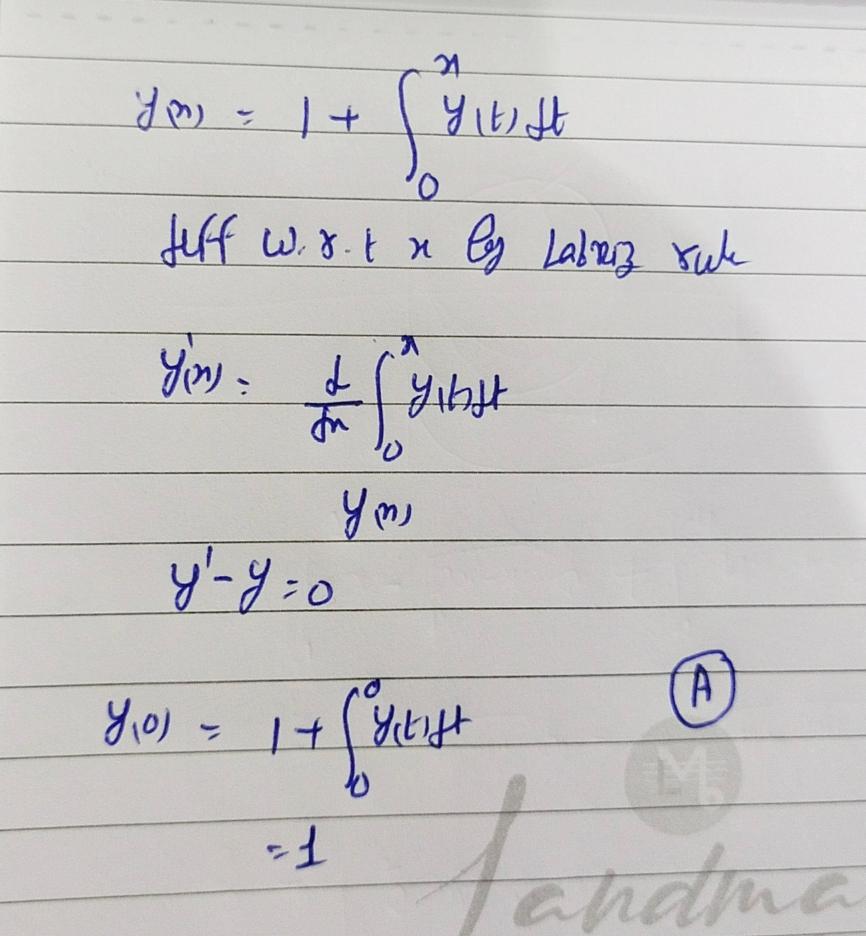 y(x) = 1 + ∫₀ˣ y(t) dt
diff w.r.t x by Labniz rule
y'(x) = d/dx ∫₀ˣ y(t) dt
y(x)
y' - y = 0
y(0) = 1 + ∫₀⁰ y(t) dt
A
= 1
Landma